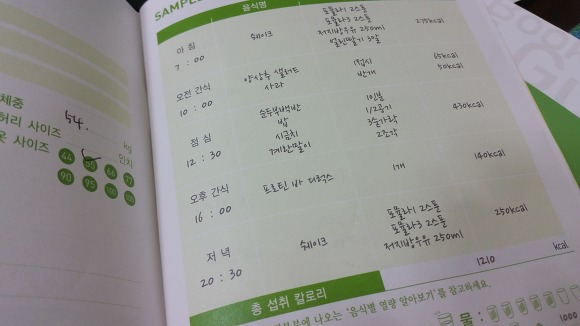 SAMPLE
음식명
아침
7 : 00
쉐이크
포뮬라1 2스푼
포뮬라3 2스푼
저지방우유 250ml
얼린딸기 30알
275kcal
오전 간식
10 : 00
양상추 샐러드
사과
1접시
반개
65kcal
50kcal
점심
12 : 30
순두부백반
밥
시금치
계란말이
1인분
1/2공기
3숟가락
2조각
430kcal
오후 간식
16 : 00
프로틴 바 디럭스
1개
140kcal
저녁
20 : 30
쉐이크
포뮬라1 2스푼
포뮬라3 2스푼
저지방우유 250ml
250kcal
총 섭취 칼로리
1210
kcal
나오는 '음식별 열량 알아보기'를 참고하세요.
물 :
1000
체중
54.
kg
허리 사이즈
인치
옷 사이즈
44 55 66 77
90 95 100 105